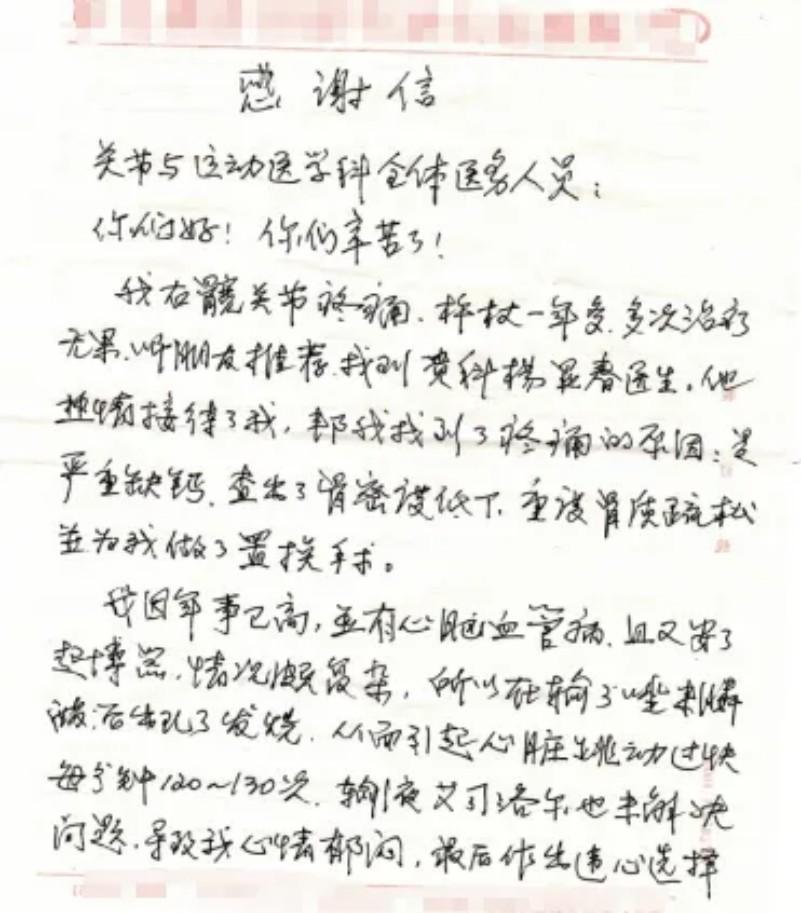 感谢信
关节与运动医学科全体医务人员:
你们好!你们辛苦了!
我右髋关节疼痛、柱杖一年多,多次治疗
无果、听朋友推荐、找到贵科杨显春医生。他
热情接待了我,帮我找到了疼痛的原因:是
严重缺钙、查出了骨密度低下、重度骨质疏松
並为我做了置换手术。
我因年事已高,並有心脑血管病、且又安了
起博器、情况颇复杂,所以在输了唑来膦
酸后出现了发烧、从而引起心脏跳动过快
每分钟120~130次、输液艾司洛尔也未解决
问题、导致我心情郁闷,最后作出违心选择